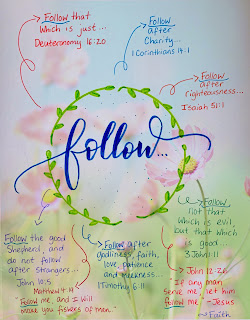 Follow that
Which is just...
Deuteronomy 16:20
Follow
after
Charity...
1 Corinthians 14:1
Follow
after
righteousness...
Isaiah 51:1
follow...
Follow
not that
which is evil,
but that which
is good...
3 John 1:11
Follow the good
Shepherd, and
do not follow
after strangers...
John 10:5
Follow after
godliness, faith,
love, patience
and meekness...
1 Timothy 6:11
Matthew 4:19
"Follow me, and I will
make you fishers of men."
John 12:26
"If any man
serve me, let him
follow me." -Jesus
Faith